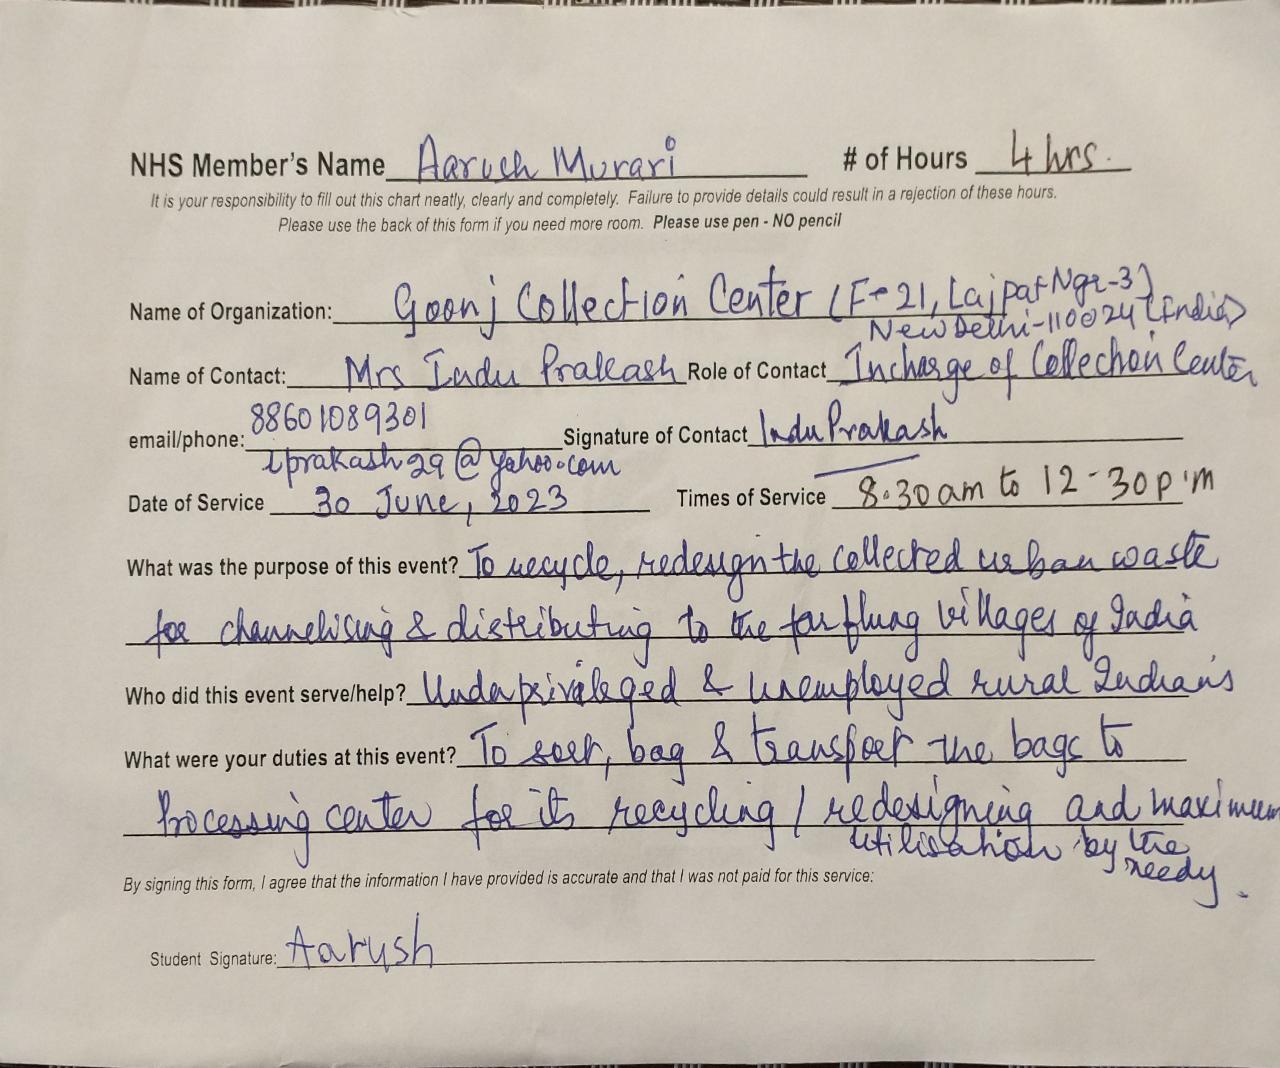 NHS Member's Name Aarush Murari # of Hours 4 hrs.
It is your responsibility to fill out this chart neatly, clearly and completely. Failure to provide details could result in a rejection of these hours.
Please use the back of this form if you need more room. Please use pen - NO pencil
Name of Organization: Goonj Collection Center (F-21, Lajpat Ngr-3)
New Delhi-110024 (India)
Name of Contact: Mrs Indu Prakash Role of Contact Incharge of Collection Center
88601089301
email/phone: Signature of Contact Indu Prakash
iprakash29@yahoo.com
Date of Service 30 June, 2023 Times of Service 8.30am to 12-30p.m
What was the purpose of this event? To recycle, redesign the collected urban waste
for channelising & distributing to the far flung villages of India
Who did this event serve/help? Underprivileged & unemployed rural Indians
What were your duties at this event? To sort, bag & transport the bags to
Processing center for its recycling / redesigning and maximum
utilisation by the
needy.
By signing this form, I agree that the information I have provided is accurate and that I was not paid for this service:
Student Signature: Aarush